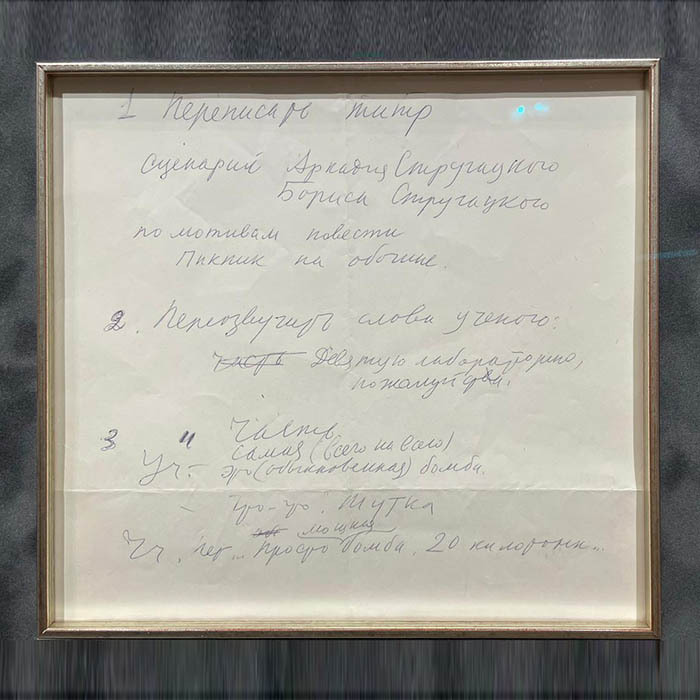 1 Переписать титр
Сценарий Аркадия Стругацкого
Бориса Стругацкого
по мотивам повести
Пикник на обочине.
2. Переозвучить слова ученого:
Девятую лабораторию,
пожалуйста.
3 " Часть
самая (всего на всего)
Уч. - это (обыкновенная) бомба.
- Что-что? Шутка
мощная
Уч. Нет... Просто бомба. 20 килотонн...